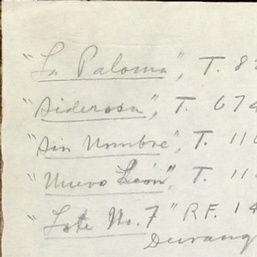 "La Paloma", T. 8
"Siderosa", T. 674
"Sin Nombre", T. 11
"Nuevo León", T. 11
"Lote No. 7" R.F. 14
Durang